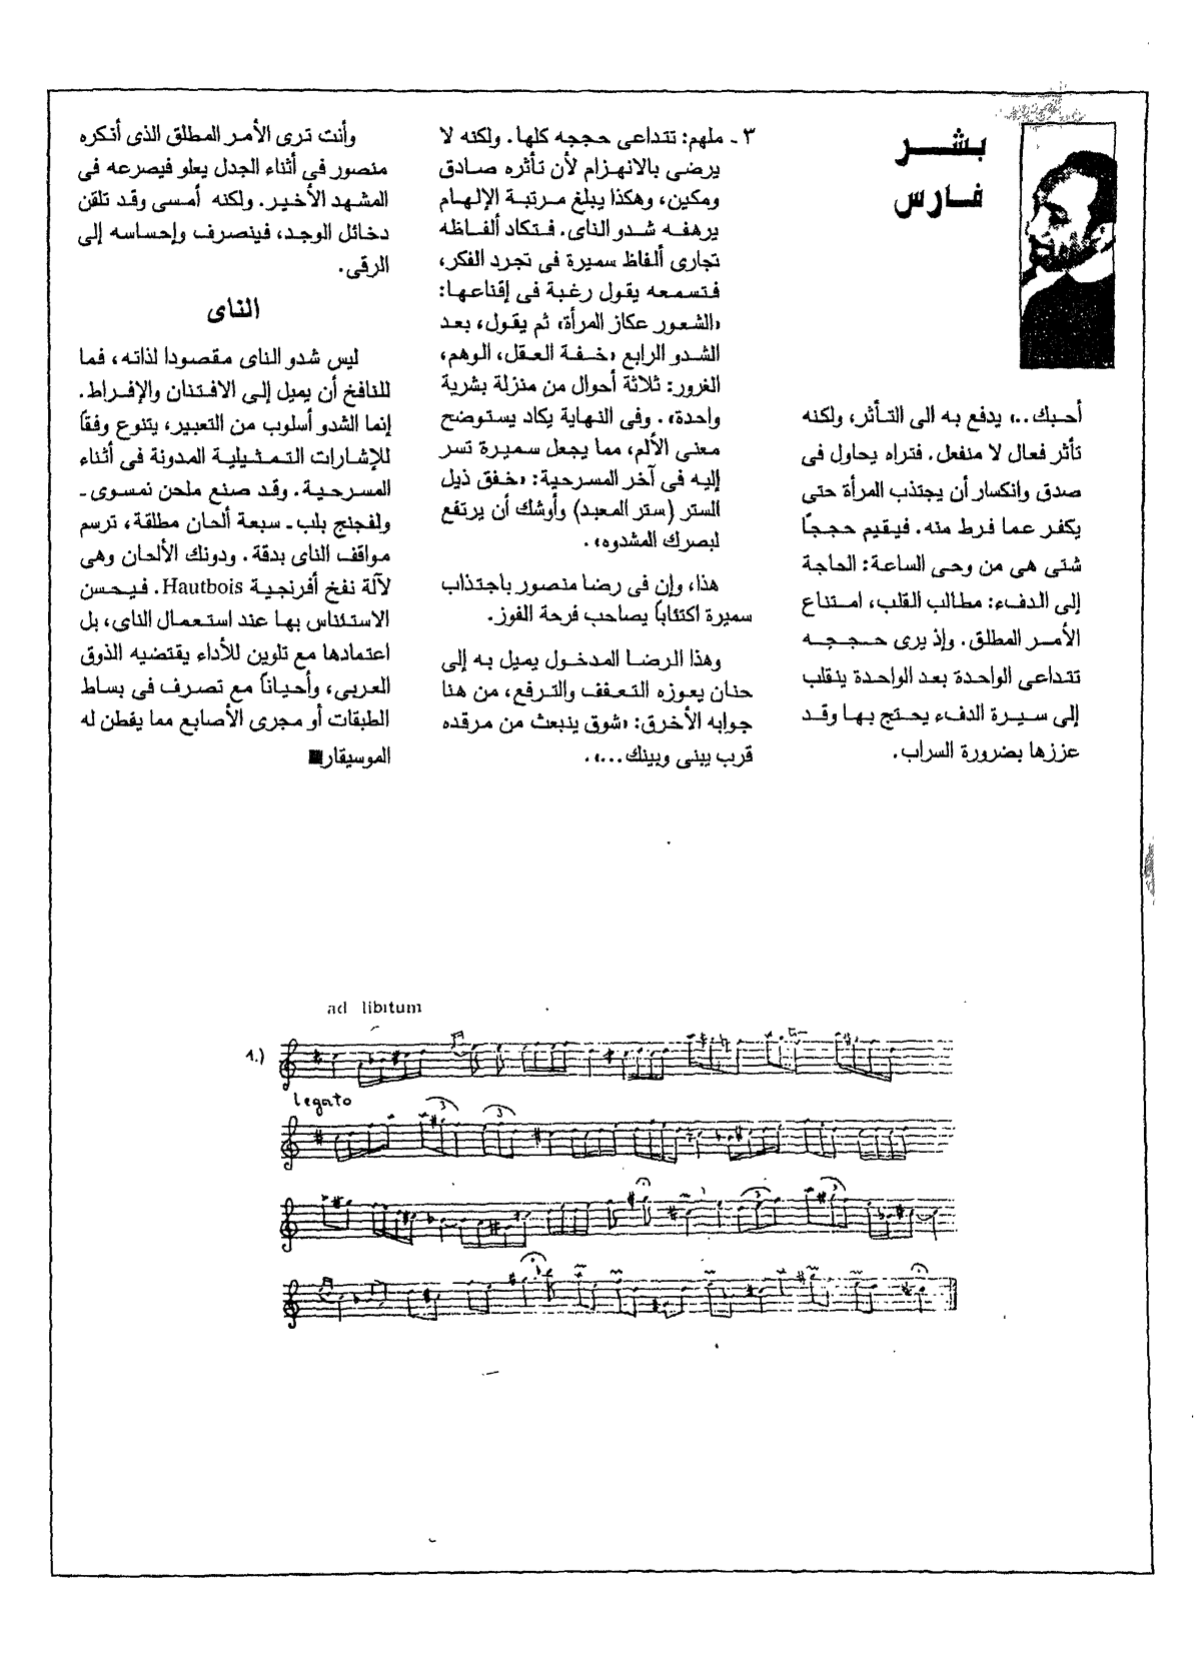 بشر
فارس
أحبك ..، يدفع به الى التأثر، ولكنه
تأثر فعال لا منفعل. فتراه يحاول فى
صدق وانكسار أن يجتذب المرأة حتى
يكفر عما فرط منه. فيقيم حججاً
شتى هى من وحى الساعة: الحاجة
إلى الدفء: مطالب القلب، امتناع
الأمر المطلق. وإذ يرى حججه
تتداعى الواحدة بعد الواحدة ينقلب
إلى سيرة الدفء يحتج بها وقد
عززها بضرورة السراب.
٣ ـ ملهم: تتداعى حججه كلها. ولكنه لا
يرضى بالانهزام لأن تأثره صادق
ومكين، وهكذا يبلغ مرتبة الإلهام
يرهفه شدو الناى. فتكاد ألفاظه
تجارى ألفاظ سميرة فى تجرد الفكر،
فتسمعه يقول رغبة فى إقناعها:
«الشعور عكاز المرأة» ثم يقول، بعد
الشدو الرابع «خفة العقل، الوهم،
الغرور: ثلاثة أحوال من منزلة بشرية
واحدة». وفى النهاية يكاد يستوضح
معنى الألم، مما يجعل سميرة تسر
إليه فى آخر المسرحية: «خفق ذيل
الستر (ستر المعبد) وأوشك أن يرتفع
لبصرك المشدوه».
هذا، وإن فى رضا منصور باجتذاب
سميرة اكتئاباً يصاحب فرحة الفوز.
وهذا الرضا المدخول يميل به إلى
حنان يعوزه التعفف والترفع، من هنا
جوابه الأخرق: «شوق ينبعث من مرقده
قرب بينى وبينك...».
وأنت ترى الأمر المطلق الذى أنكره
منصور فى أثناء الجدل يعلو فيصرعه فى
المشهد الأخير. ولكنه أمسى وقد تلقن
دخائل الوجد، فينصرف وإحساسه إلى
الرقى.
الناى
ليس شدو الناى مقصودا لذاته، فما
للنافخ أن يميل إلى الافتنان والإفراط.
إنما الشدو أسلوب من التعبير، يتنوع وفقاً
للإشارات التمثيلية المدونة فى أثناء
المسرحية. وقد صنع ملحن نمسوى ـ
ولفجنج بلب ـ سبعة ألحان مطلقة، ترسم
مواقف الناى بدقة. ودونك الألحان وهى
لآلة نفخ أفرنجية Hautbois. فيحسن
الاستئناس بها عند استعمال الناى، بل
اعتمادها مع تلوين للأداء يقتضيه الذوق
العربى، وأحياناً مع تصرف فى بساط
الطبقات أو مجرى الأصابع مما يفطن له
الموسيقار■
ad libitum
1.)
legato
3 3
3 3